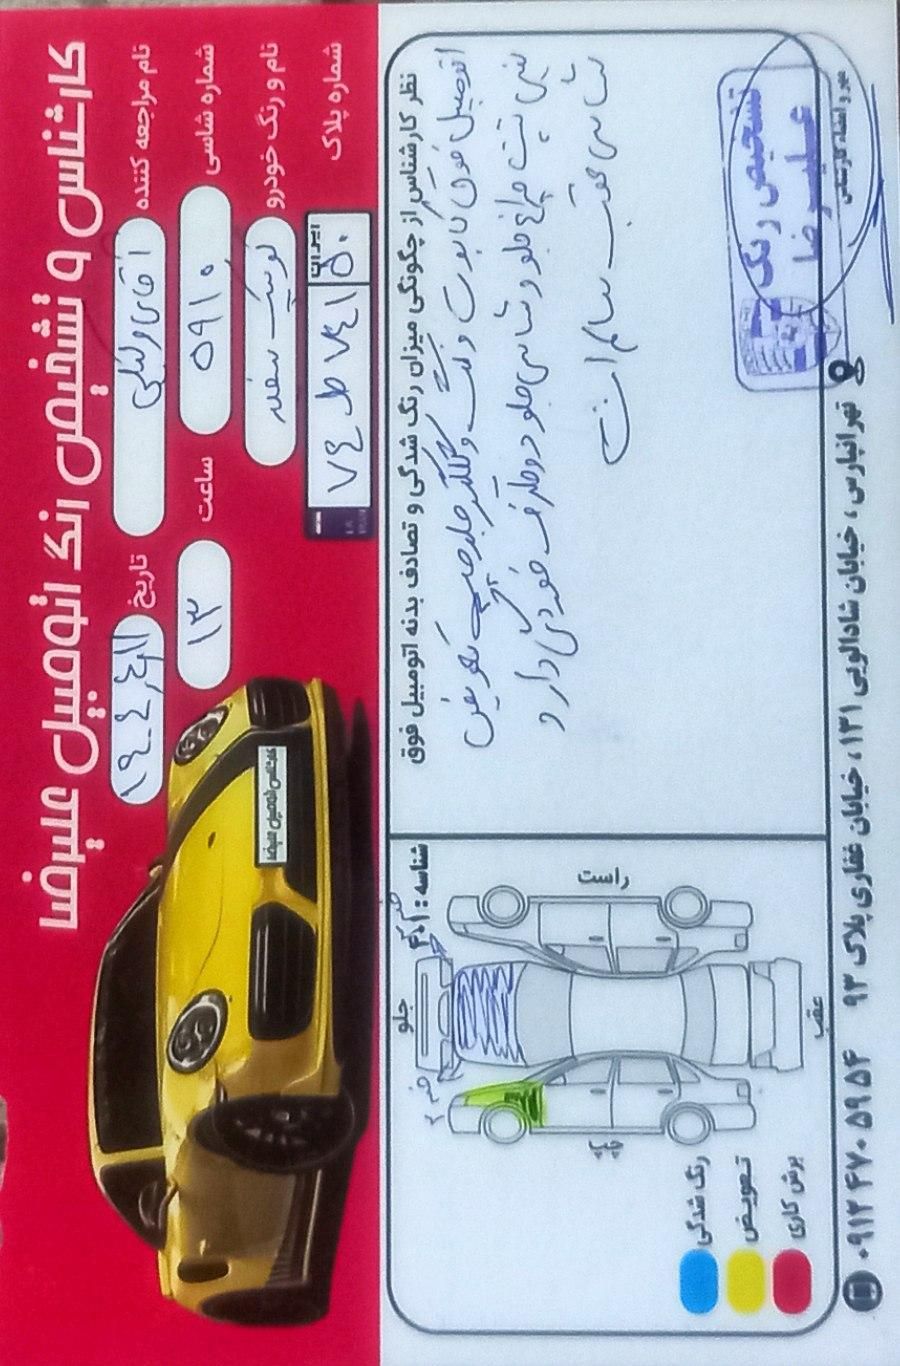 کارشناس و تشخیص رنگ اتومبیل علیرضا
نام مراجعه کننده
آقای ولیلی
تاریخ
۱۴۰۴,۴,۱۱
شماره شاسی
۵۹۱۰
ساعت
۱۳
نام و رنگ خودرو
کوییک سفید
شماره پلاک
۷۴ ط ۷۴۱
ایران
۵۰
کارشناسی اتومبیل علیرضا
نظر کارشناس از چگونگی میزان رنگ شدگی و تصادف بدنه اتومبیل فوق
اتومبیل فوق کاپوت رنگ و گلگیر جلو چپ تعویض
سینی پشت چراغ جلو و شاسی جلو دو طرف خوردگی دارد
شاسی عقب سالم است
مهر و امضاء کارشناسی
تشخیص رنگ
علیرضا
شناسه : ۴۰۱
راست
جلو
عقب
چپ
رنگ شدگی
تعویض
برش کاری
تهرانپارس ، خیابان شاداللویی ۱۳۱ ، خیابان غفاری پلاک ۹۳
۰۹۱۲ ۴۷۰ ۵۹ ۵۴